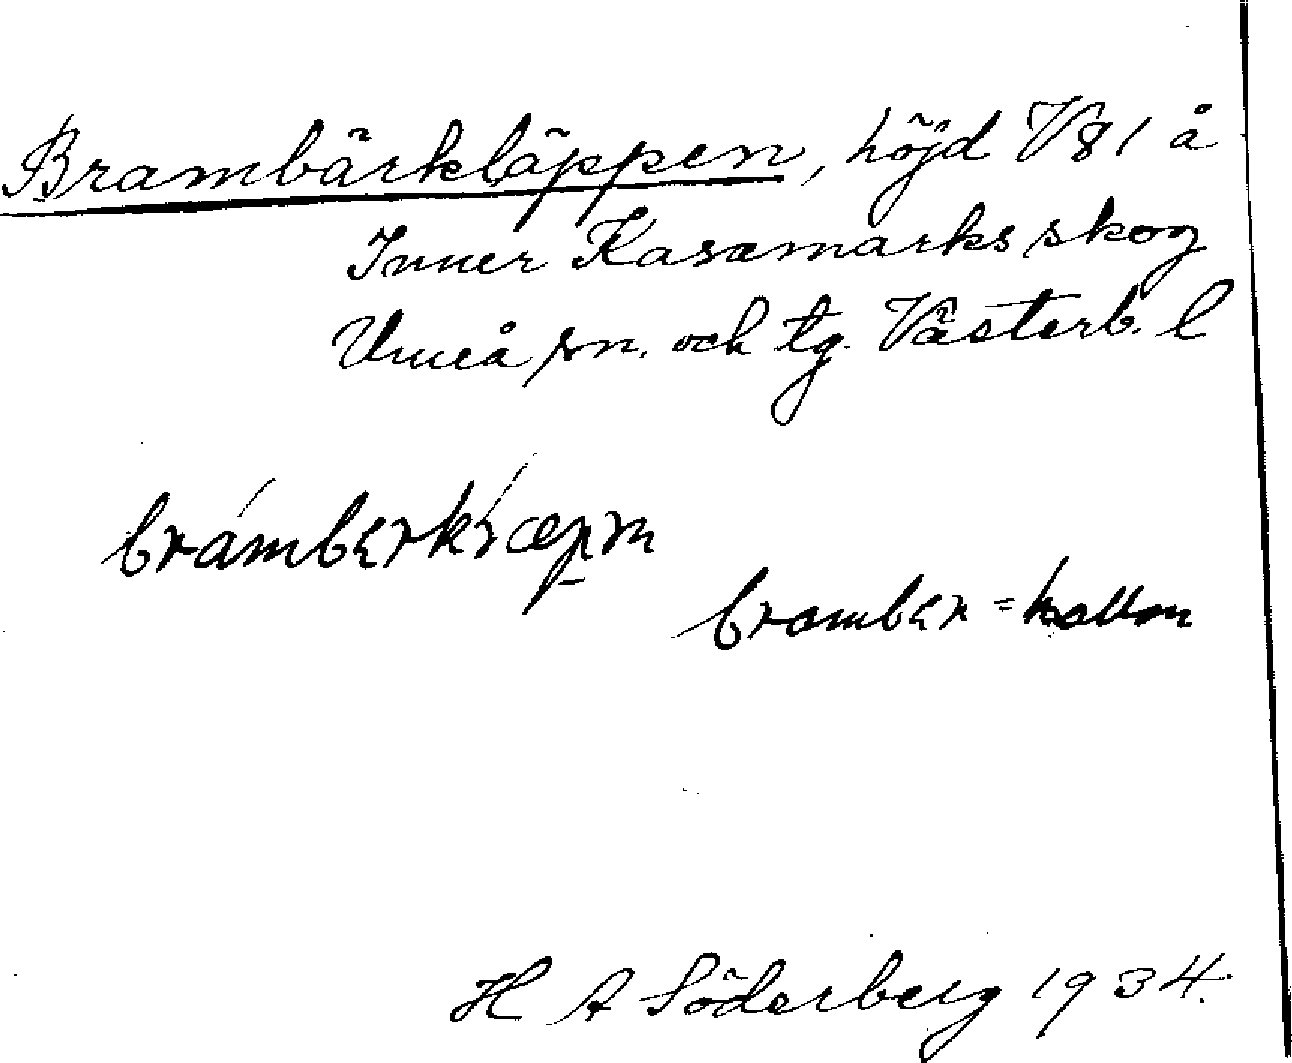 Brambärkläppen, höjd V81 å
Inner Kasamarks skog
Umeå sn. och tg. Västerb. l
bramber = hallon
H A Söderberg 1934.